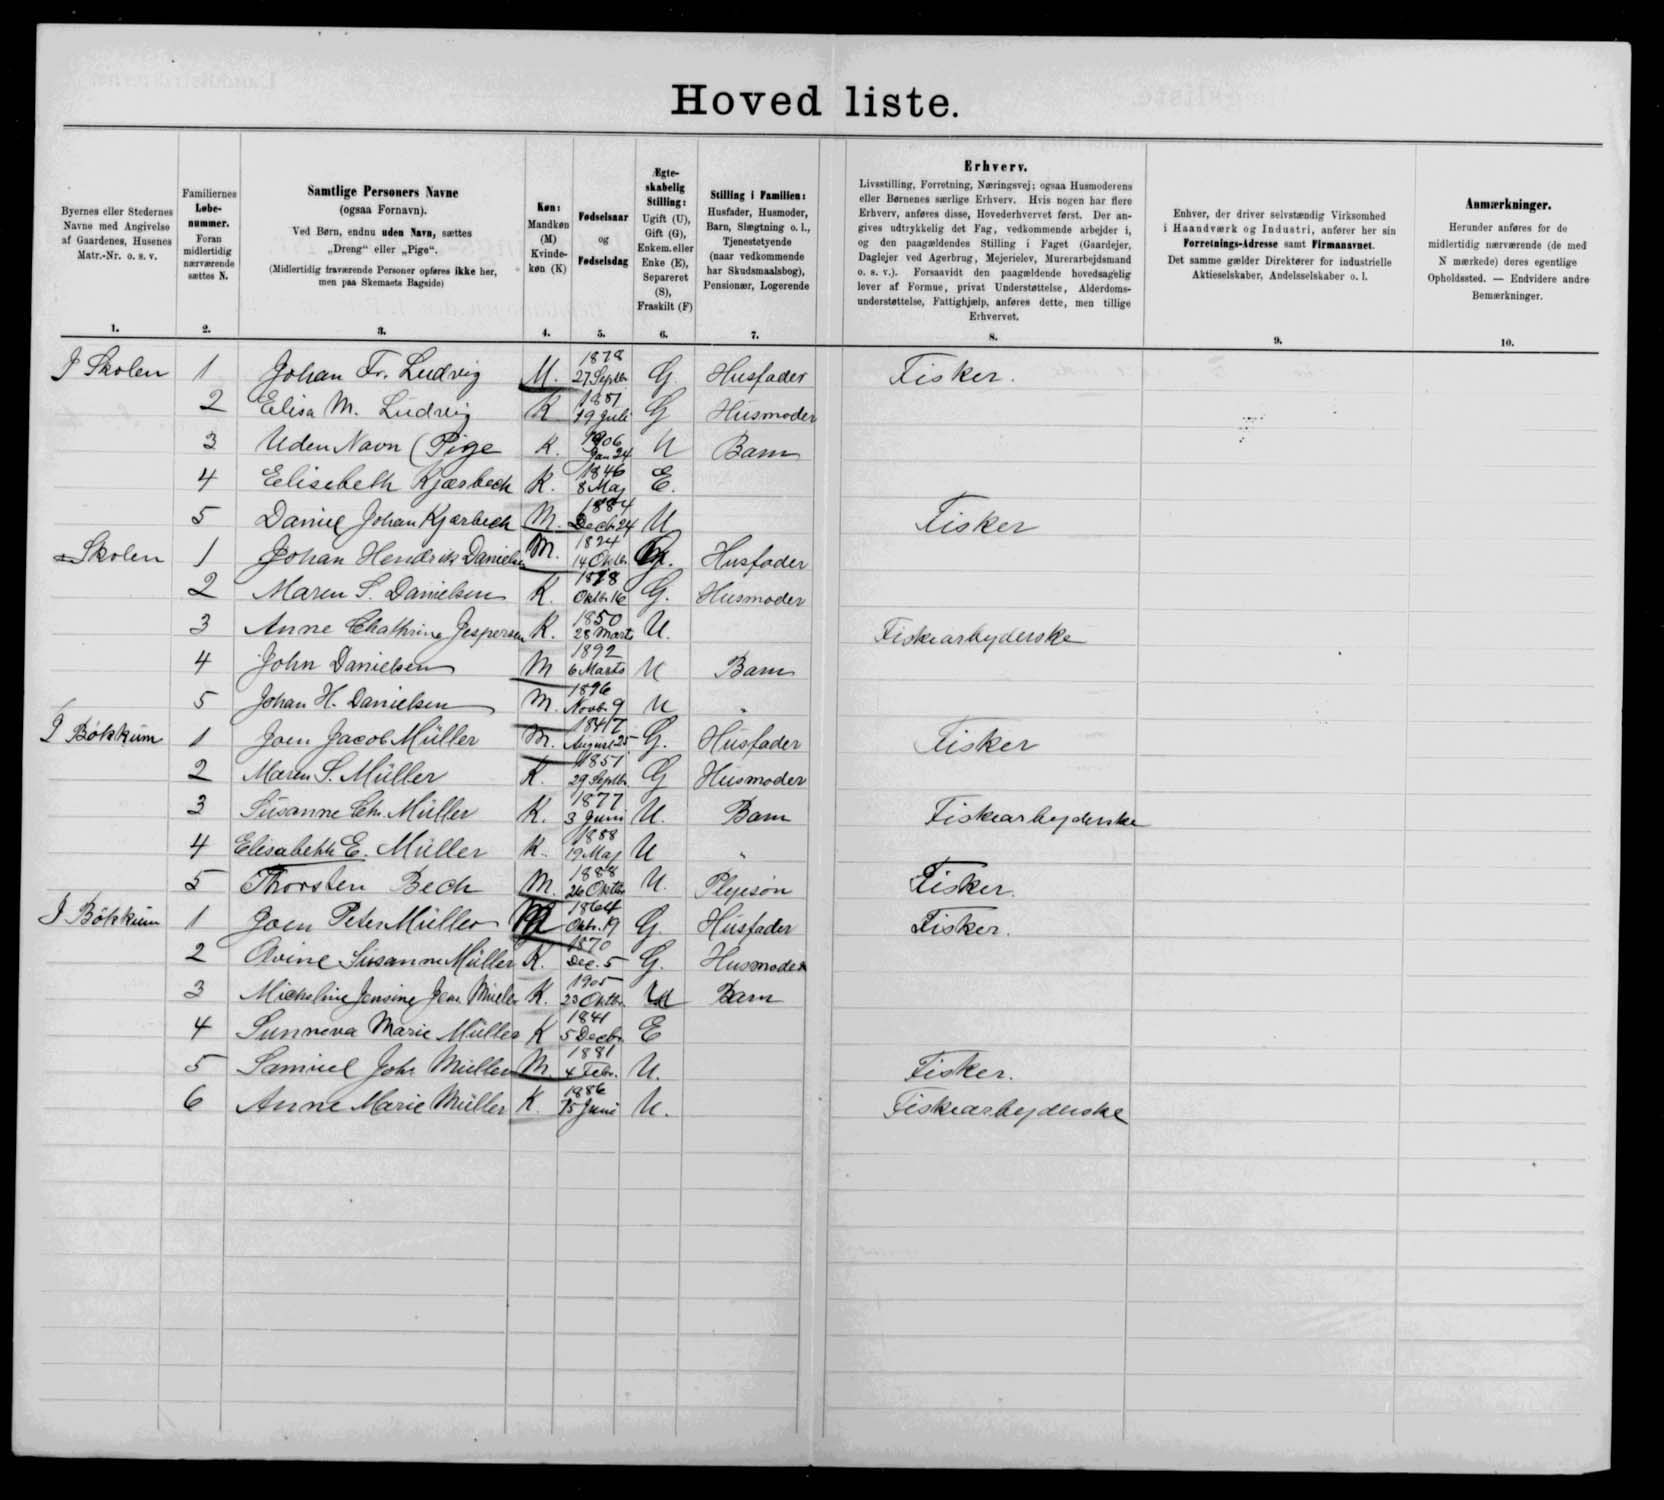 Hoved liste.
Byernes eller Stedernes
Navne med Angivelse
af Gaardenes, Husenes
Matr.-Nr. o. s. v.
1.
Familiernes
Løbe-
nummer.
Foran
midlertidig
nærværende
sættes N.
2.
Samtlige Personers Navne
(ogsaa Fornavn).
Ved Børn, endnu uden Navn, sættes
„Dreng“ eller „Pige“.
(Midlertidig fraværende Personer opføres ikke her,
men paa Skemaets Bagside)
3.
Køn:
Mandkøn
(M)
Kvinde-
køn (K)
4.
Fødselsaar
og
Fødselsdag
5.
Ægte-
skabelig
Stilling:
Ugift (U),
Gift (G),
Enkem. eller
Enke (E),
Separeret
(S),
Fraskilt (F)
6.
Stilling i Familien:
Husfader, Husmoder,
Barn, Slægtning o. l.,
Tjenestetyende
(naar vedkommende
har Skudsmaalsbog),
Pensionær, Logerende
7.
Erhverv.
Livsstilling, Forretning, Næringsvej; ogsaa Husmoderens
eller Børnenes særlige Erhverv. Hvis nogen har flere
Erhverv, anføres disse, Hovederhvervet først. Der an-
gives udtrykkelig det Fag, vedkommende arbejder i,
og den paagældendes Stilling i Faget (Gaardejer,
Daglejer ved Agerbrug, Mejerielev, Murerarbejdsmand
o. s. v.). Forsaavidt den paagældende hovedsagelig
lever af Formue, privat Understøttelse, Alderdoms-
understøttelse, Fattighjælp, anføres dette, men tillige
Erhvervet.
8.
Enhver, der driver selvstændig Virksomhed
i Haandværk og Industri, anfører her sin
Forretnings-Adresse samt Firmanavnet.
Det samme gælder Direktører for industrielle
Aktieselskaber, Andelsselskaber o. l.
9.
Anmærkninger.
Herunder anføres for de
midlertidig nærværende (de med
N mærkede) deres egentlige
Opholdssted. — Endvidere andre
Bemærkninger.
10.
I Skolen 1 Johan Fr. Ludvig M. 1878 27 Septbr. G. Husfader Fisker.
2 Elisa M. Ludvig K 1881 19 Juli G Husmoder
3 Uden Navn (Pige K. 1906 Jan 24 U Barn
4 Elisebeth Kjærbech K. 1846 8 Maj E.
5 Daniel Johan Kjærbech M. 1884 Decb. 24 U Fisker
Skolen 1 Johan Hendrik Danielsen M. 1824 14 Oktb. G. Husfader
2 Maren S. Danielsen K. Oktb. 16 G. Husmoder
3 Anne Chathrine Jespersen K. 1850 28 Marts U. Fiskearbyderske
4 John Danielsen M 1892 6 Marts U Barn
5 Johan H. Danielsen M. 1896 Novb. 9 U "
I Bökkum 1 Joen Jacob Müller M. 1847 August 25 G. Husfader Fisker
2 Maren S. Müller K. 1851 29 Septbr. G Husmoder
3 Susanne Chr. Müller K. 1877 3 Juni U. Barn Fiskearbejderske
4 Elisabeth E. Müller K. 1888 19 Maj U "
5 Thorsten Bech M. 1888 26 Oktbr. U. Plejesøn Fisker.
I Bökkum 1 Joen Peter Müller M 1864 Oktr. 19 G. Husfader Fisker.
2 Olvine Susanne Müller K. 1870 Dec. 5 G. Husmoder
3 Micheline Jensine Müller K. 1905 23 Oktbr. U Barn
4 Sunneva Marie Müller K 1841 5 Decbr. E
5 Samuel Joh. Müller M. 1881 4 Febr. U. Fisker.
6 Anne Marie Müller K. 1886 15 Juni U. Fiskearbejderske